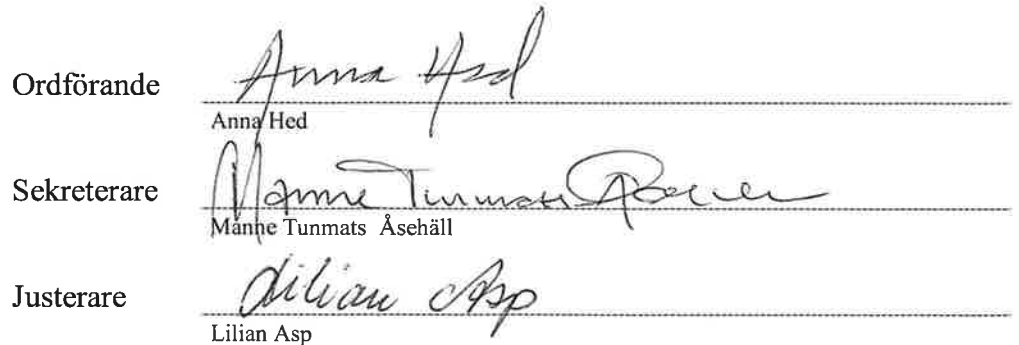 Ordförande Anna Hed
Anna Hed
Sekreterare Manne Tunmats
Manne Tunmats Åsehäll
Justerare Lilian Asp
Lilian Asp